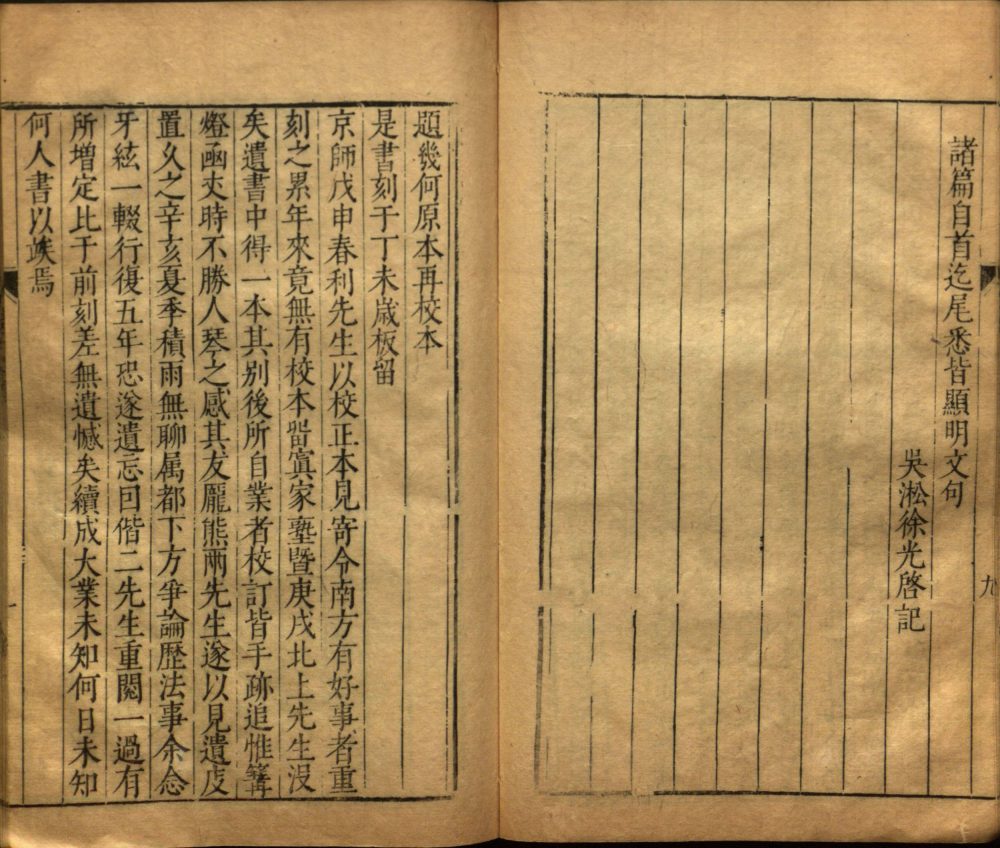 諸篇自首迄尾悉皆顯明文句
吳淞徐光啓記
九
題幾何原本再校本
是書刻于丁未歲板留
京師戊申春利先生以校正本見寄令南方有好事者重
刻之累年來竟無有校本留寘家塾曁庚戌北上先生沒
矣遺書中得一本其别後所自業者校訂皆手跡追惟篝
燈函丈時不勝人琴之感其友龐熊兩先生遂以見遺庋
置久之辛亥夏季積雨無聊属都下方爭論歷法事余念
牙絃一輟行復五年恐遂遺忘囙偕二先生重閱一過有
所增定比于前刻差無遺憾矣續成大業未知何日未知
何人書以竢焉